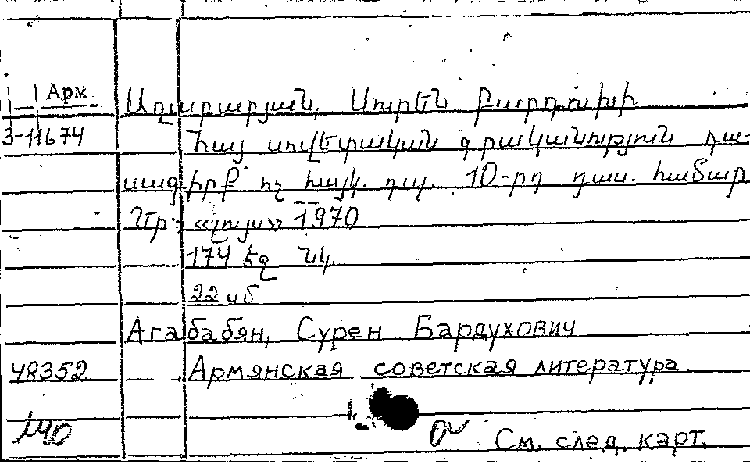 Арм.
Աղաբաբյան, Սուրեն Բարդուխի
3-11674
Հայ սովետական գրականություն դա-
սագիրք ոչ հայկ. դպ. 10-րդ դաս. համար
Եր. «Լույս» 1970
174 էջ նկ.
22 սմ
Агабабян, Сурен Бардухович
48352
Армянская советская литература
См. след. карт.